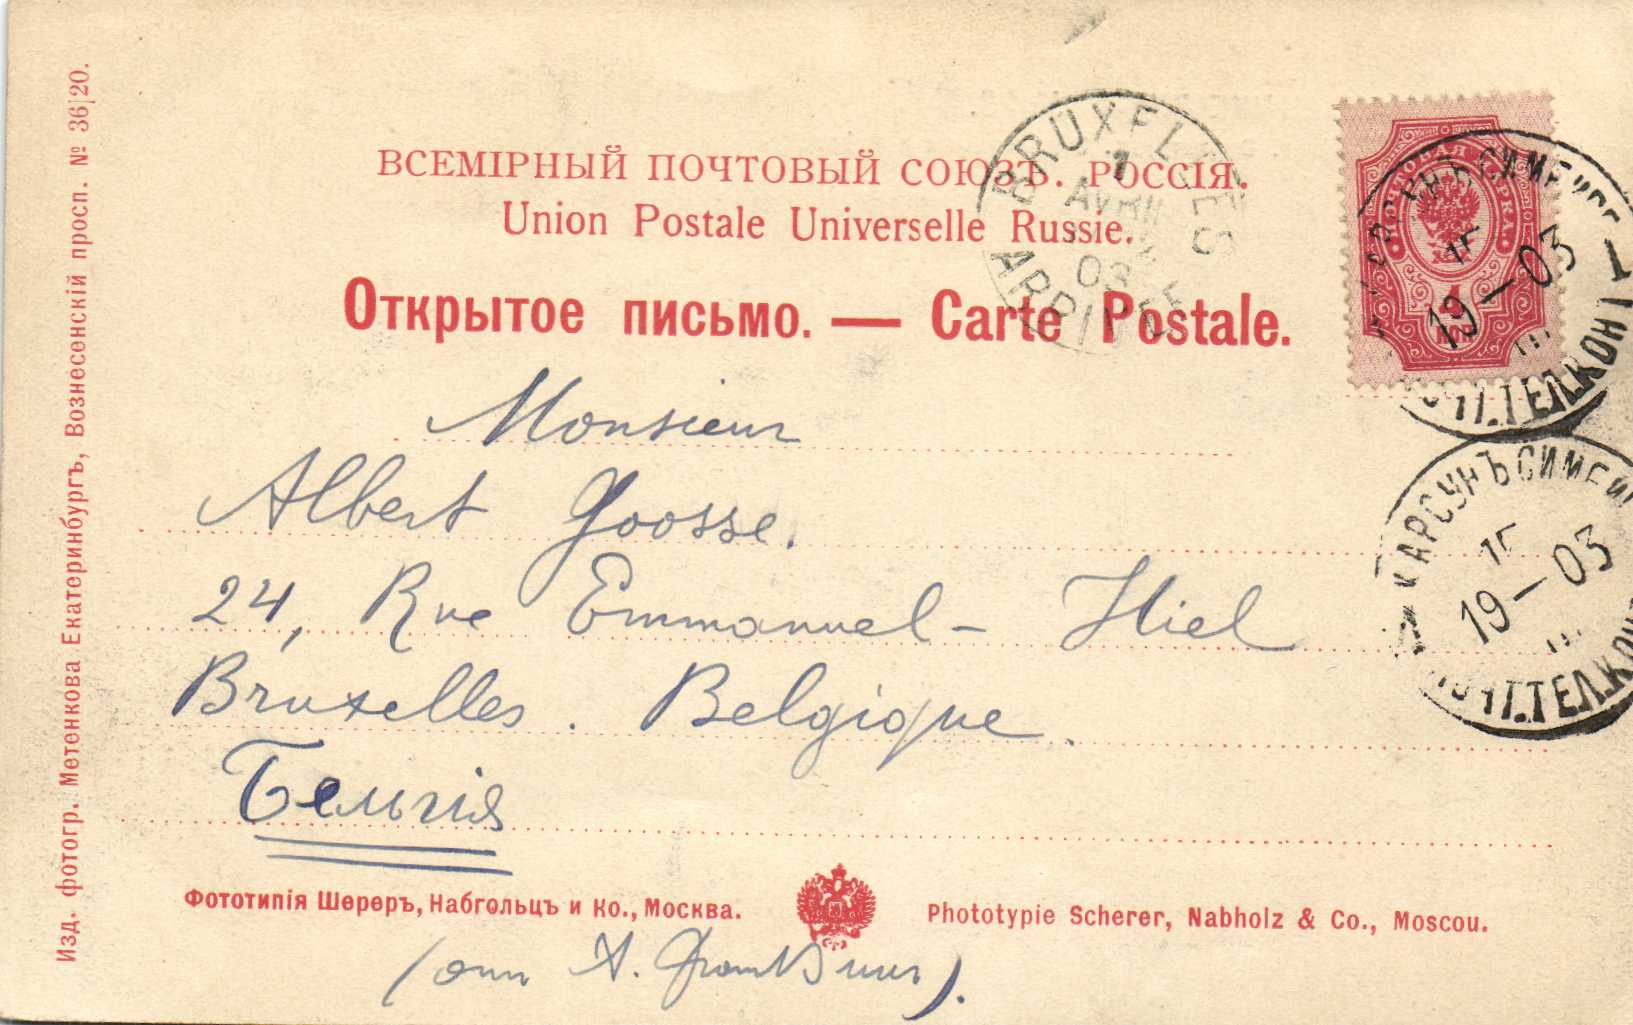 ВСЕМІРНЫЙ ПОЧТОВЫЙ СОЮЗЪ. РОССІЯ.
Union Postale Universelle Russie.
Открытое письмо. — Carte Postale.
BRUXELLES
1
AVRIL
03
ARRIVEE
ПОЧТОВАЯ МАРКА
19–03
ПОЧТ.ТЕЛ.КОНТ
КАРСУНЪ СИМБИР
15
19–03
ПОЧТ.ТЕЛ.КОН
Monsieur
Albert Goosse.
24, Rue Emmanuel - Hiel
Bruxelles. Belgique.
Бельгія
Фототипія Шереръ, Набгольцъ и Ко., Москва.
Phototypie Scherer, Nabholz & Co., Moscou.
(отъ А.
Изд. фотогр. Метенкова Екатеринбургъ, Вознесенскій просп. № 36|20.